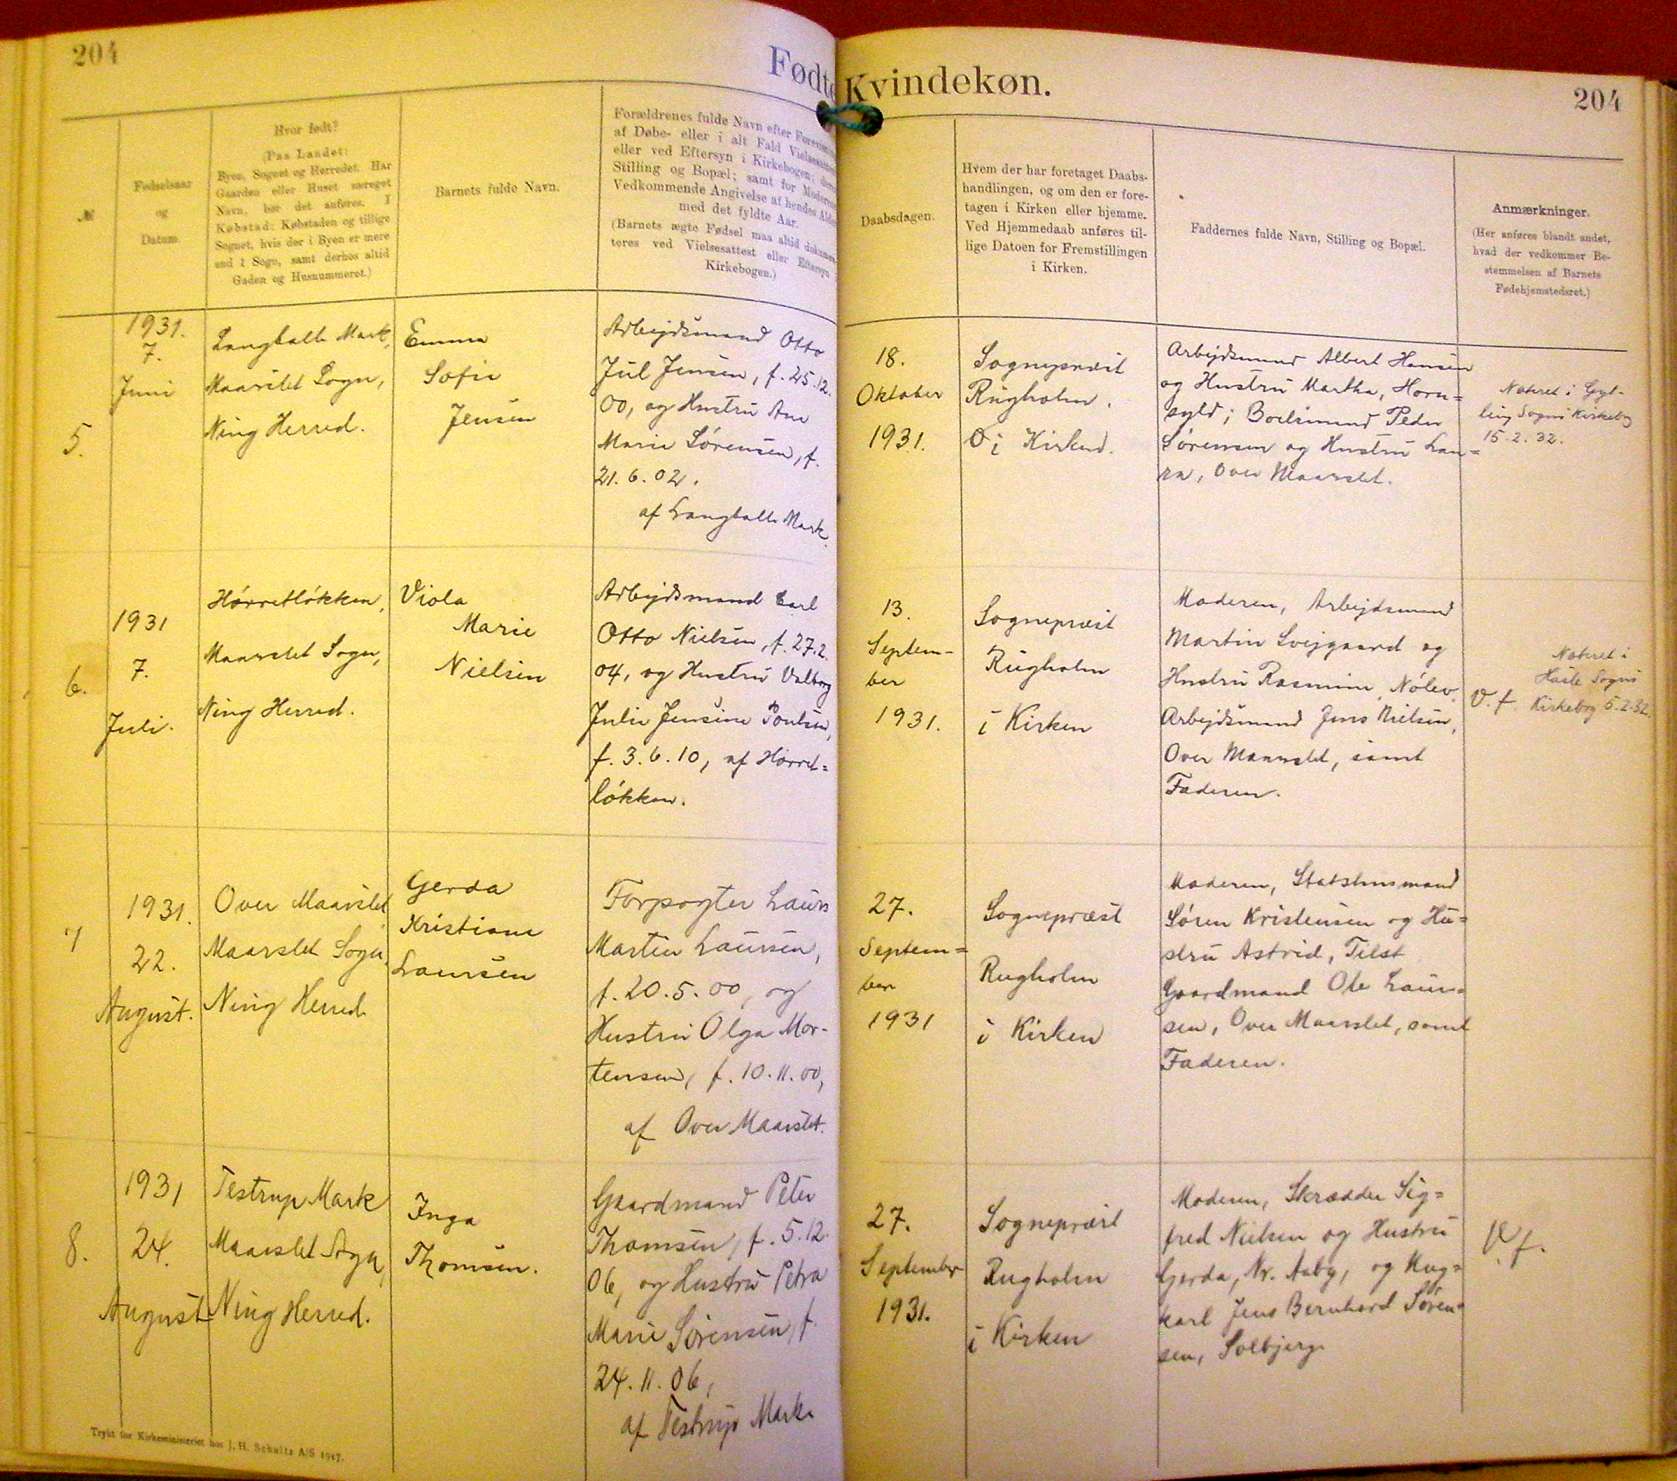 204
Fødte Kvindekøn.
204
№
Fødselsaar
og
Datum.
Hvor født?
(Paa Landet:
Byen, Sognet og Herredet. Har
Gaarden eller Huset særeget
Navn, bør det anføres. I
Købstad: Købstaden og tillige
Sognet, hvis der i Byen er mere
end 1 Sogn, samt derhos altid
Gaden og Husnummeret.)
Barnets fulde Navn.
Forældrenes fulde Navn efter
af Døbe- eller i alt Fald
eller ved Eftersyn i Kirkebogen;
Stilling og Bopæl; samt for
Vedkommende Angivelse af hendes
med det fyldte Aar.
(Barnets ægte Fødsel maa altid
teres ved Vielsesattest eller Eftersyn
Kirkebogen.)
Daabsdagen.
Hvem der har foretaget Daabs-
handlingen, og om den er fore-
tagen i Kirken eller hjemme.
Ved Hjemmedaab anføres til-
lige Datoen for Fremstillingen
i Kirken.
Faddernes fulde Navn, Stilling og Bopæl.
Anmærkninger.
(Her anføres blandt andet,
hvad der vedkommer Be-
stemmelsen af Barnets
Fødehjemstedsret.)
5.
1931.
7.
Juni
Langballe Mark,
Maarslet Sogn,
Ning Herred.
Emma
Sofie
Jensen
Arbejdsmand Otto
Jul Jensen, f. 25.12.
00, og Hustru Ane
Marie Sørensen, f.
21.6.02.
af Langballe Mark.
18.
Oktober
1931.
Sognepræst
Rugholm.
i Kirken.
Arbejdsmand Albert Hansen
og Hustru Martha, Horn=
syld; Boelsmand Peder
Sørensen og Hustru Lau=
ra, Over Maarslet.
Noteret i Gyl-
ling Sogns Kirkebog
15.2.32.
6.
1931
7.
Juli.
Hørretløkken,
Maarslet Sogn,
Ning Herred.
Viola
Marie
Nielsen
Arbejdsmand Carl
Otto Nielsen, f. 27.2.
04, og Hustru Valborg
Julie Jensine Poulsen,
f. 3.6.10, af Hørret=
løkken.
13.
Septem-
ber
1931.
Sognepræst
Rugholm
i Kirken
Moderen, Arbejdsmand
Martin Svejgaard og
Hustru Rasmine, Nølev,
Arbejdsmand Jens Nielsen,
Over Maarslet, samt
Faderen.
Noteret i
Sogns
V. f. Kirkebog 5.2.32.
7
1931.
22.
August.
Over Maarslet,
Maarslet Sogn,
Ning Herred
Gerda
Kristiane
Laursen
Forpagter Laurs
Martin Laursen,
f. 20.5.00, og
Hustru Olga Mor-
tensen, f. 10.11.00,
af Over Maarslet.
27.
Septem=
ber
1931
Sognepræst
Rugholm
i Kirken
Moderen, Statshusmand
Søren Kristensen og Hu=
stru Astrid, Tilst
Gaardmand Ole Laur=
sen, Over Maarslet, samt
Faderen.
8.
1931
24.
August
Testrup Mark
Maarslet Sogn,
Ning Herred.
Inga
Thomsen.
Gaardmand Peter
Thomsen, f. 5.12.
06, og Hustru Petra
Marie Sørensen, f.
24.11.06,
af Testrup Mark.
27.
September
1931.
Sognepræst
Rugholm
i Kirken
Moderen, Skrædder Sig=
fred Nielsen og Hustru
Gerda, Nr. Aaby, og Ung=
karl Jens Bernhard Søren=
sen, Solbjerg.
V. f.
Trykt for Kirkeministeriet hos J. H. Schultz A/S 1917.